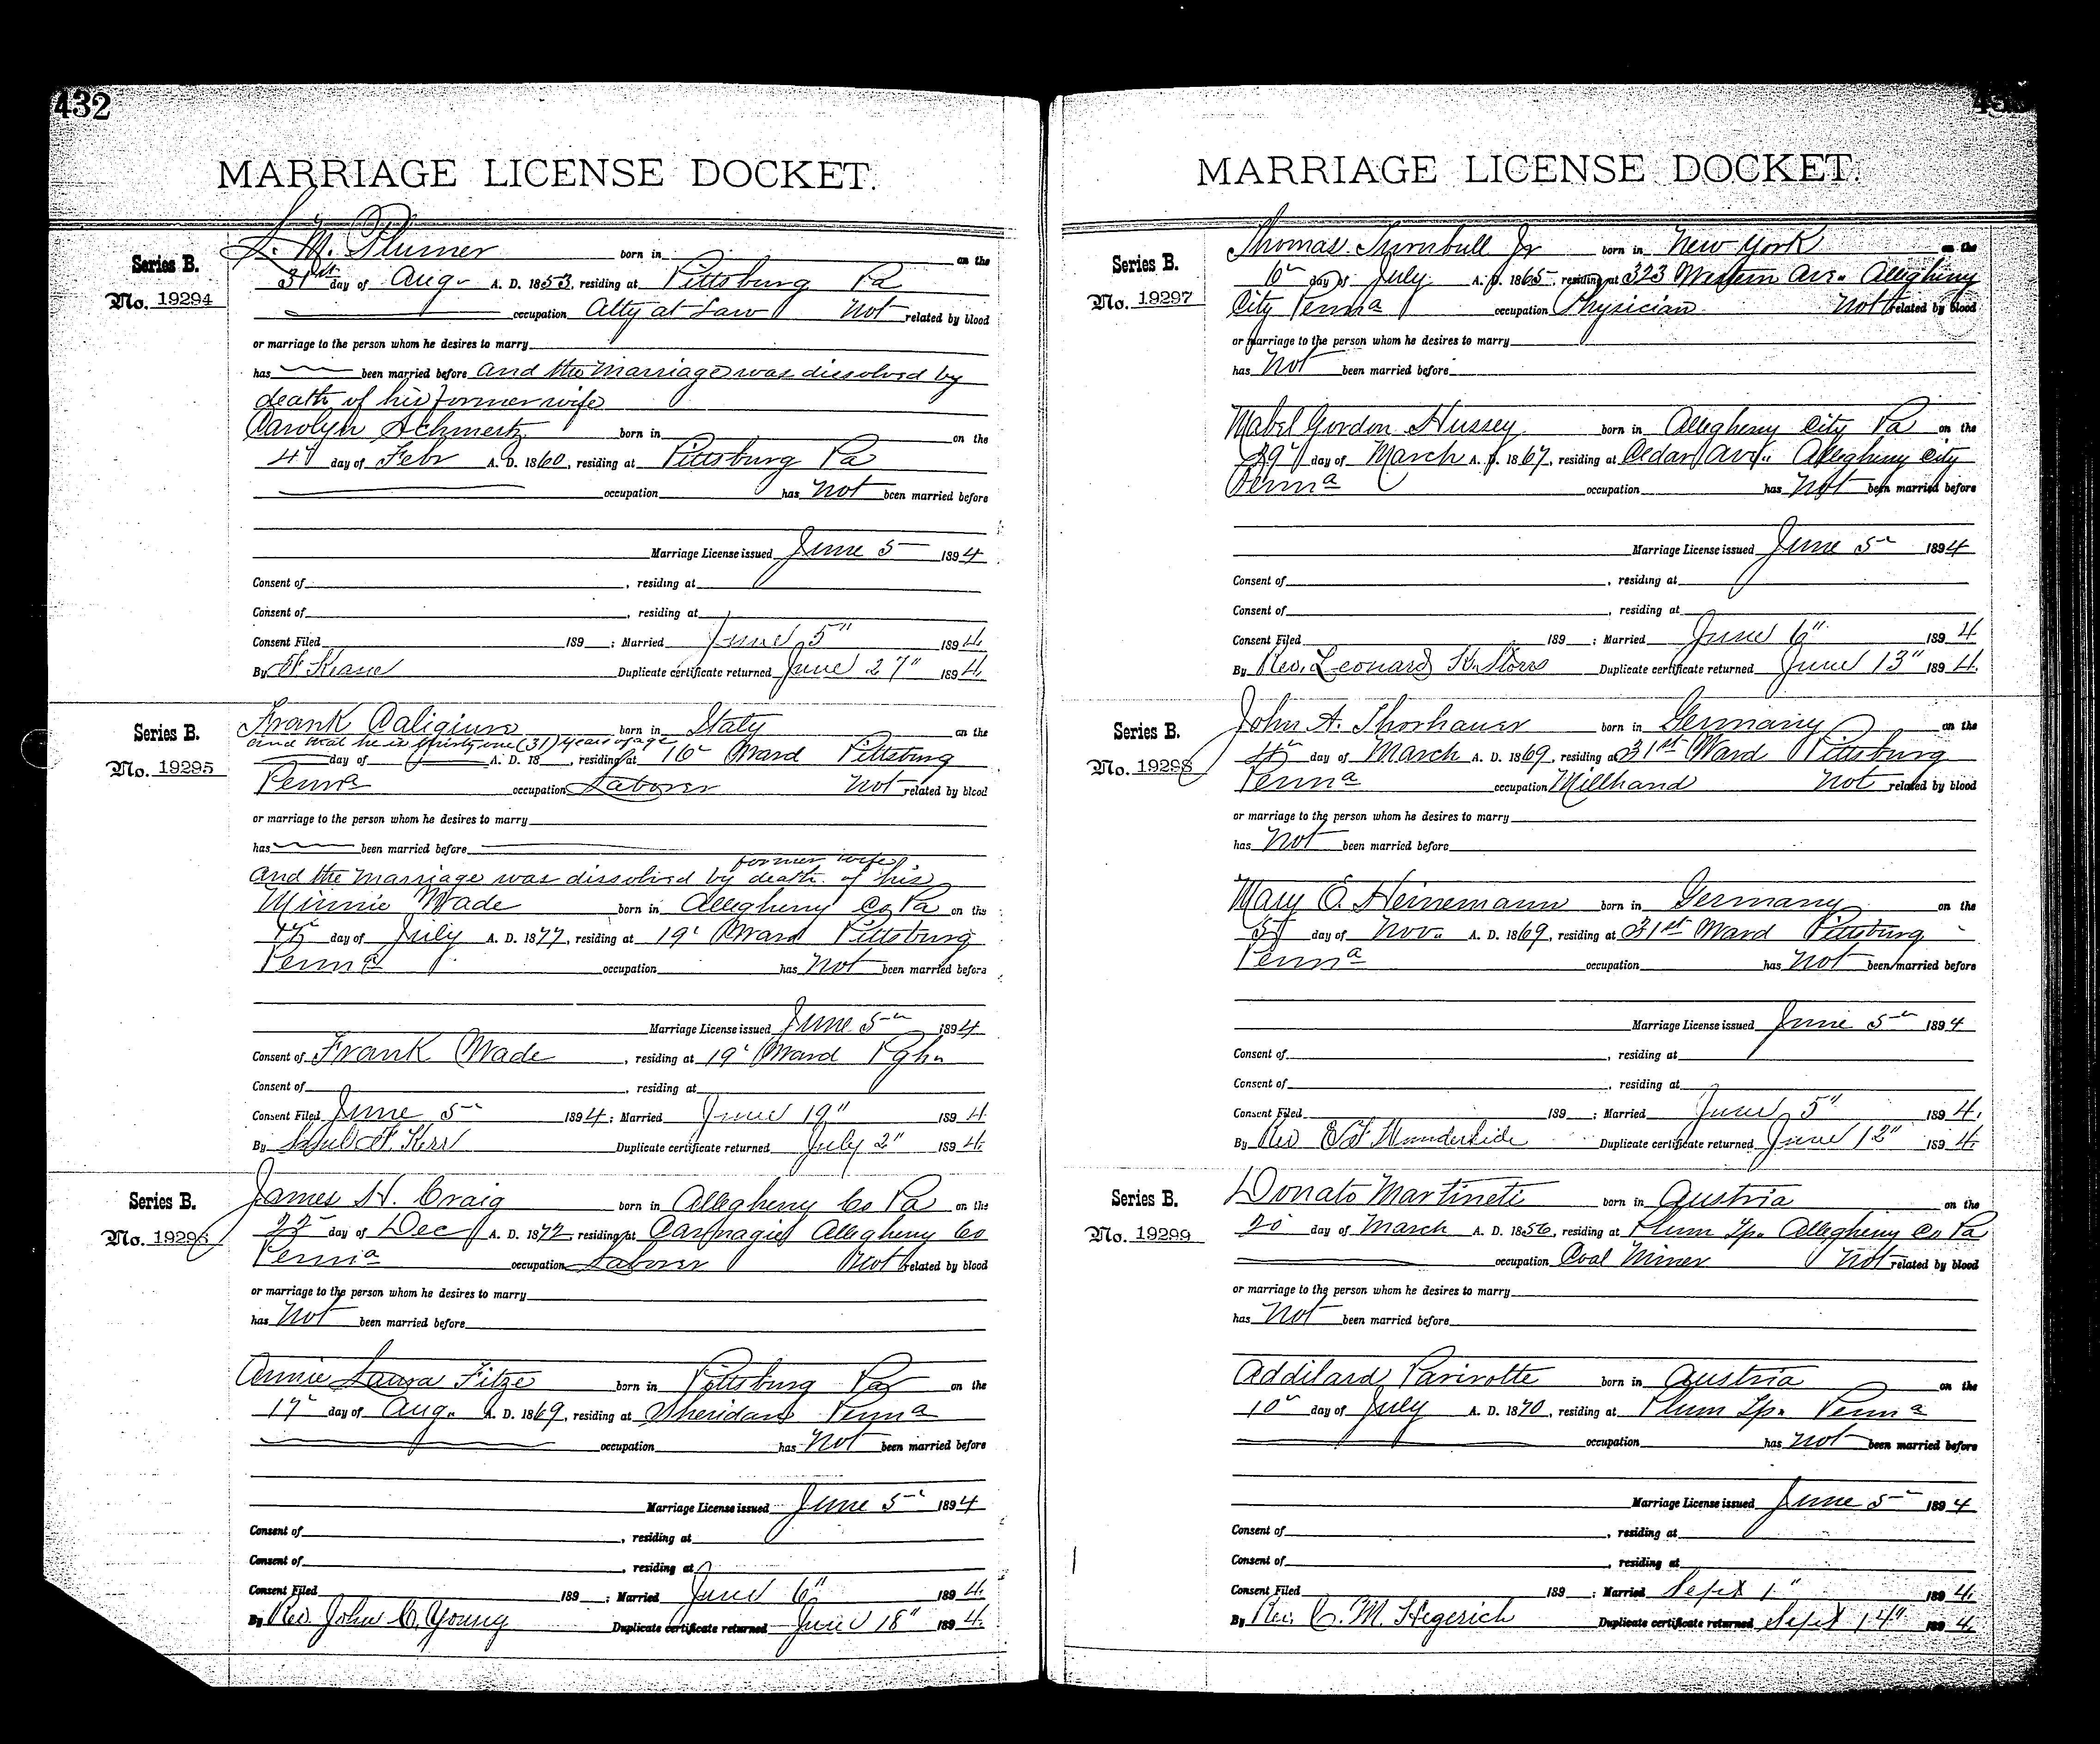 432
MARRIAGE LICENSE DOCKET.
Series B.
No. 19294
L. M. Plumer born in on the
31st day of Aug. A. D. 1853, residing at Pittsburg Pa
occupation Atty at Law Not related by blood
or marriage to the person whom he desires to marry
has been married before and the marriage was dissolved by
death of his former wife
Carolyn Schmertz born in on the
4" day of Febr A. D. 1860, residing at Pittsburg Pa
occupation has Not been married before
Marriage License issued June 5 1894
Consent of , residing at
Consent of , residing at
Consent Filed 189 ; Married June 5" 1894.
By Keane Duplicate certificate returned June 27" 1894.
Series B.
No. 19295
Frank Caligiuro born in Italy on the
and that he is thirty one (31) years of age
day of A. D. 18 , residing at 16" Ward Pittsburg
Penna occupation Laborer Not related by blood
or marriage to the person whom he desires to marry
has been married before
former wife
and the marriage was dissolved by death of his
Minnie Wade born in Allegheny Co Pa on the
day of July A. D. 1877, residing at 19" Ward Pittsburg
Penna occupation has Not been married before
Marriage License issued June 5" 1894
Consent of Frank Wade , residing at 19" Ward Pgh"
Consent of , residing at
Consent Filed June 5" 1894 ; Married June 19" 1894
By Kerr Duplicate certificate returned July 2" 1894.
Series B.
No. 19296
James H. Craig born in Allegheny Co Pa on the
22" day of Dec A. D. 1872, residing at Carnagie Allegheny Co
Penna occupation Laborer Not related by blood
or marriage to the person whom he desires to marry
has Not been married before
Annie Laura Fitze born in Pittsburg Pa on the
17" day of Aug. A. D. 1869, residing at Sheridan Penna
occupation has Not been married before
Marriage License issued June 5" 1894
Consent of , residing at
Consent of , residing at
Consent Filed 189 ; Married June 6" 1894.
By Rev. John C. Young Duplicate certificate returned June 18" 1894.
MARRIAGE LICENSE DOCKET.
Series B.
No. 19297
Thomas Turnbull Jr born in New York on the
6" day of July A. D. 1865, residing at 323 Western Ave. Allegheny
City Penna occupation Physician Not related by blood
or marriage to the person whom he desires to marry
has Not been married before
Mabel Gordon Hussey born in Allegheny City Pa on the
29" day of March A. D. 1867, residing at Cedar Ave. Allegheny City
Penna occupation has Not been married before
Marriage License issued June 5" 1894
Consent of , residing at
Consent of , residing at
Consent Filed 189 ; Married June 6" 1894
By Rev. Leonard K. Storrs Duplicate certificate returned June 13" 1894.
Series B.
No. 19298
John A. Thorhauer born in Germany on the
4" day of March A. D. 1869, residing at 31st Ward Pittsburg
Penna occupation Millhand Not related by blood
or marriage to the person whom he desires to marry
has Not been married before
Mary E. Heinemann born in Germany on the
5" day of Nov. A. D. 1869, residing at 31st Ward Pittsburg
Penna occupation has Not been married before
Marriage License issued June 5" 1894
Consent of , residing at
Consent of , residing at
Consent Filed 189 ; Married June 5" 1894.
By Rev Duplicate certificate returned June 12" 1894.
Series B.
No. 19299
Donato Martineti born in Austria on the
20" day of March A. D. 1856, residing at Plum Tp. Allegheny Co Pa
occupation Coal Miner Not related by blood
or marriage to the person whom he desires to marry
has Not been married before
Addilard Parivotte born in Austria on the
10" day of July A. D. 1870, residing at Plum Tp. Penna
occupation has Not been married before
Marriage License issued June 5" 1894
Consent of , residing at
Consent of , residing at
Consent Filed 189 ; Married Sept 1" 1894.
By Rev. C. M. Hegerich Duplicate certificate returned Sept 14" 1894.